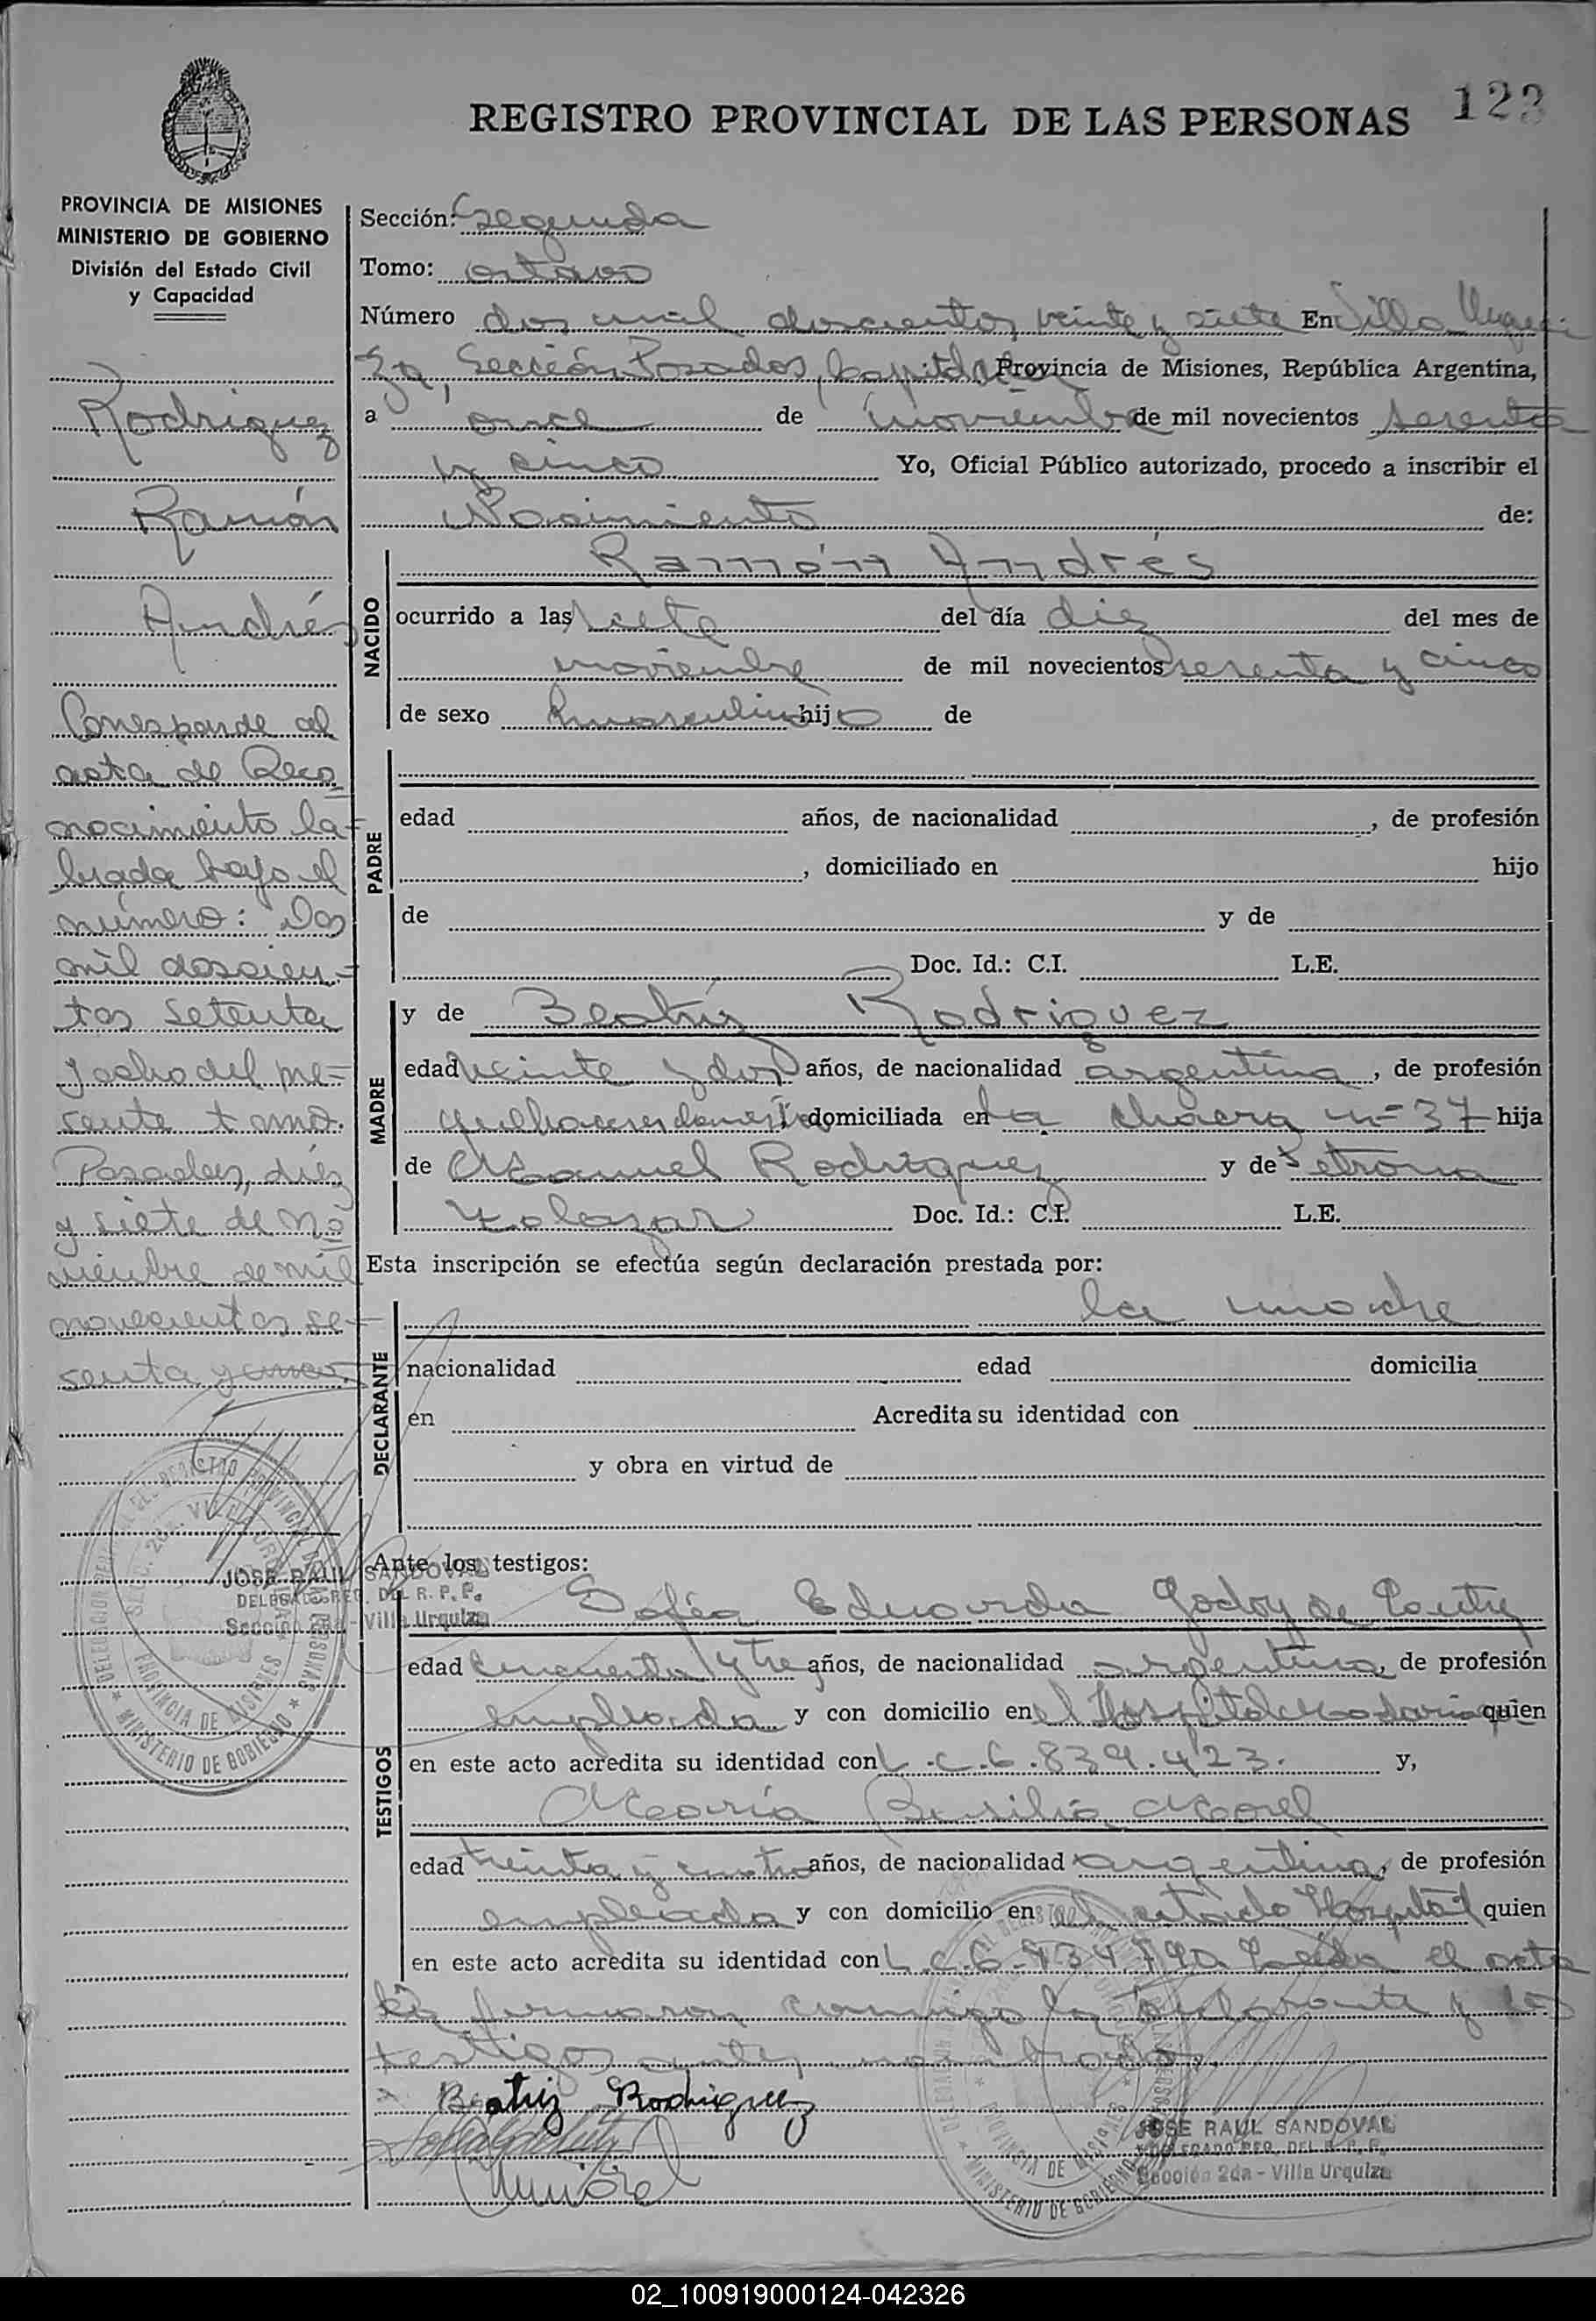 REGISTRO PROVINCIAL DE LAS PERSONAS 123
PROVINCIA DE MISIONES
MINISTERIO DE GOBIERNO
División del Estado Civil
y Capacidad
Rodriguez
Ramón
Andrés
Corresponde al
acta de Reco
nocimiento la-
brada bajo el
número: Dos
mil doscien-
tos setenta
y ocho del pre-
sente tomo.
Posadas, diez
y siete de No
viembre de mil
novecientos se-
senta y cinco.
JOSE RAUL SANDOVAL
DELEGADO REG. DEL R. P. P.
Sección 2da - Villa Urquiza
Sección: Segunda
Tomo: octavo
Número dos mil doscientos veinte y siete En Villa Urqui
za, Sección Posadas, Capital Provincia de Misiones, República Argentina,
a once de noviembre de mil novecientos sesenta
y cinco Yo, Oficial Público autorizado, procedo a inscribir el
Nacimiento de:
NACIDO
Ramón Andrés
ocurrido a las siete del día diez del mes de
noviembre de mil novecientos sesenta y cinco
de sexo masculino hijo de
PADRE
edad años, de nacionalidad , de profesión
, domiciliado en hijo
de y de
Doc. Id.: C.I. L.E.
MADRE
y de Beatriz Rodriguez
edad veinte y dos años, de nacionalidad argentina, de profesión
domiciliada en la chacra nº 37 hija
de Manuel Rodriguez y de Petrona
Doc. Id.: C.I. L.E.
Esta inscripción se efectúa según declaración prestada por:
DECLARANTE
la madre
nacionalidad edad domicilia
en Acredita su identidad con
y obra en virtud de
Ante los testigos:
TESTIGOS
Sofía Eduarda Godoy de
edad cincuenta y tre años, de nacionalidad argentina, de profesión
empleada y con domicilio en el Hospital Madariaga quien
en este acto acredita su identidad con L.C.6.839.423. y,
María Basilia Morel
edad treinta y cuatro años, de nacionalidad argentina, de profesión
empleada y con domicilio en el citado Hospital quien
en este acto acredita su identidad con L.C.6. Leída el acta
la firmaron conmigo la declarante y los
testigos antes nombrados.
Beatriz Rodriguez
JOSE RAUL SANDOVAL
DELEGADO REG. DEL R. P. P.
Sección 2da - Villa Urquiza
02_100919000124-042326